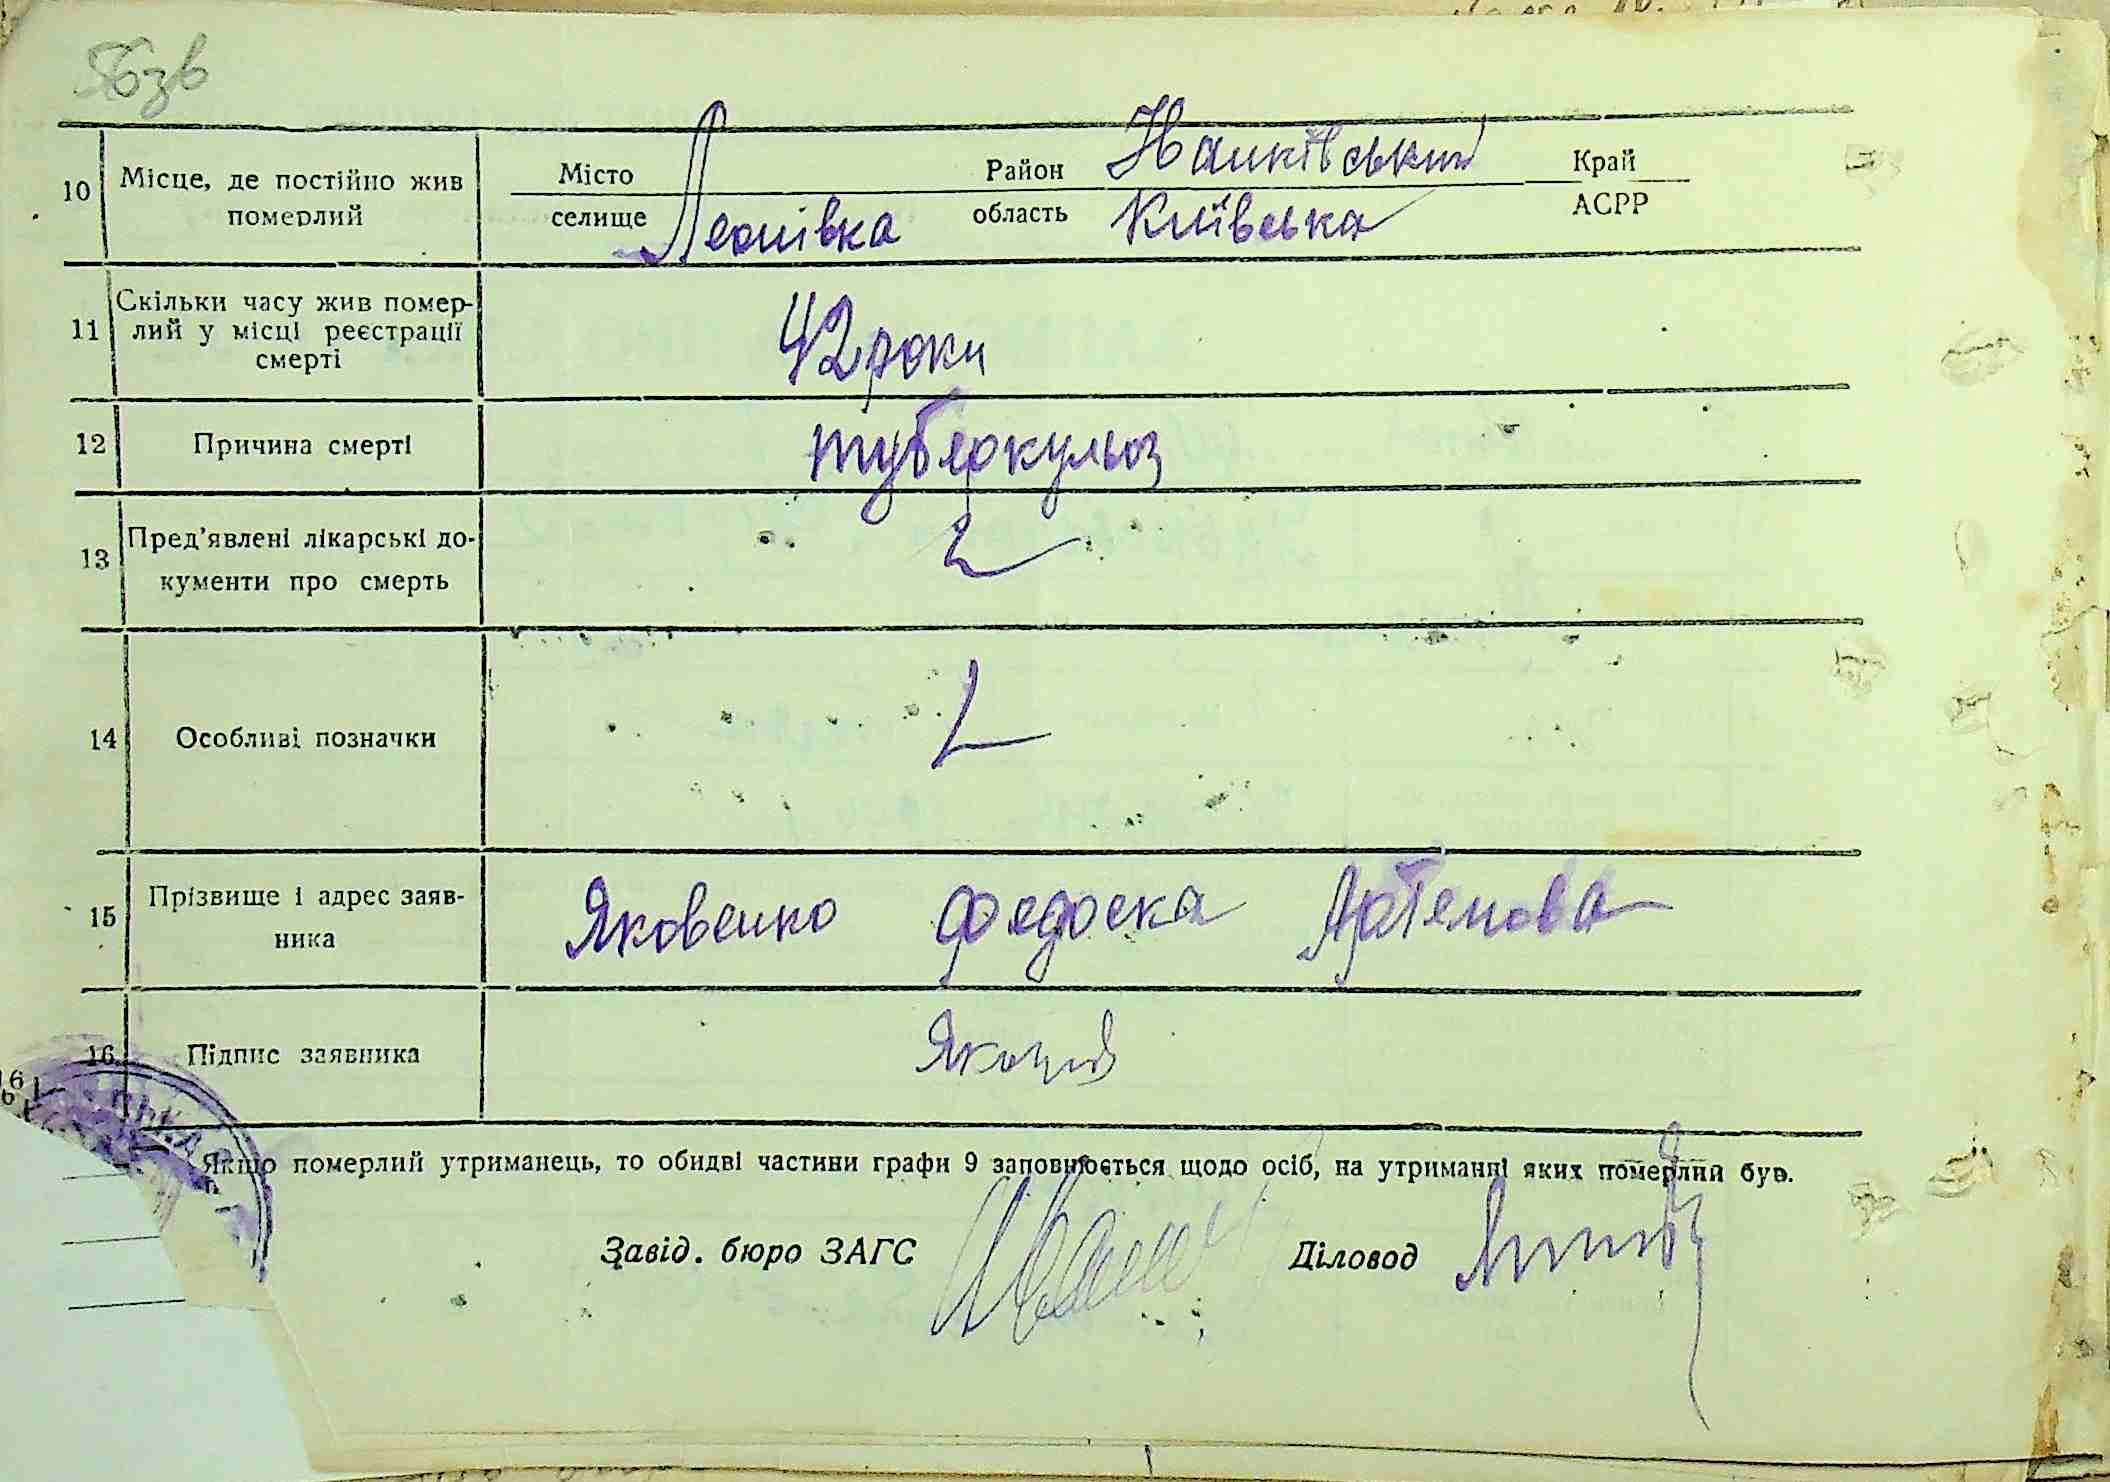 56зв
10 Місце, де постійно жив померлий Місто селище Леонівка Район Іванківський область Київська Край АСРР
11 Скільки часу жив померлий у місці реєстрації смерті 42 роки
12 Причина смерті туберкульоз
13 Пред'явлені лікарські документи про смерть
14 Особливі позначки
15 Прізвище і адрес заявника Яковенко Федоска Артемова
16 Підпис заявника
Якщо померлий утриманець, то обидві частини графи 9 заповнюється щодо осіб, на утриманні яких померлий був.
Завід. бюро ЗАГС Діловод